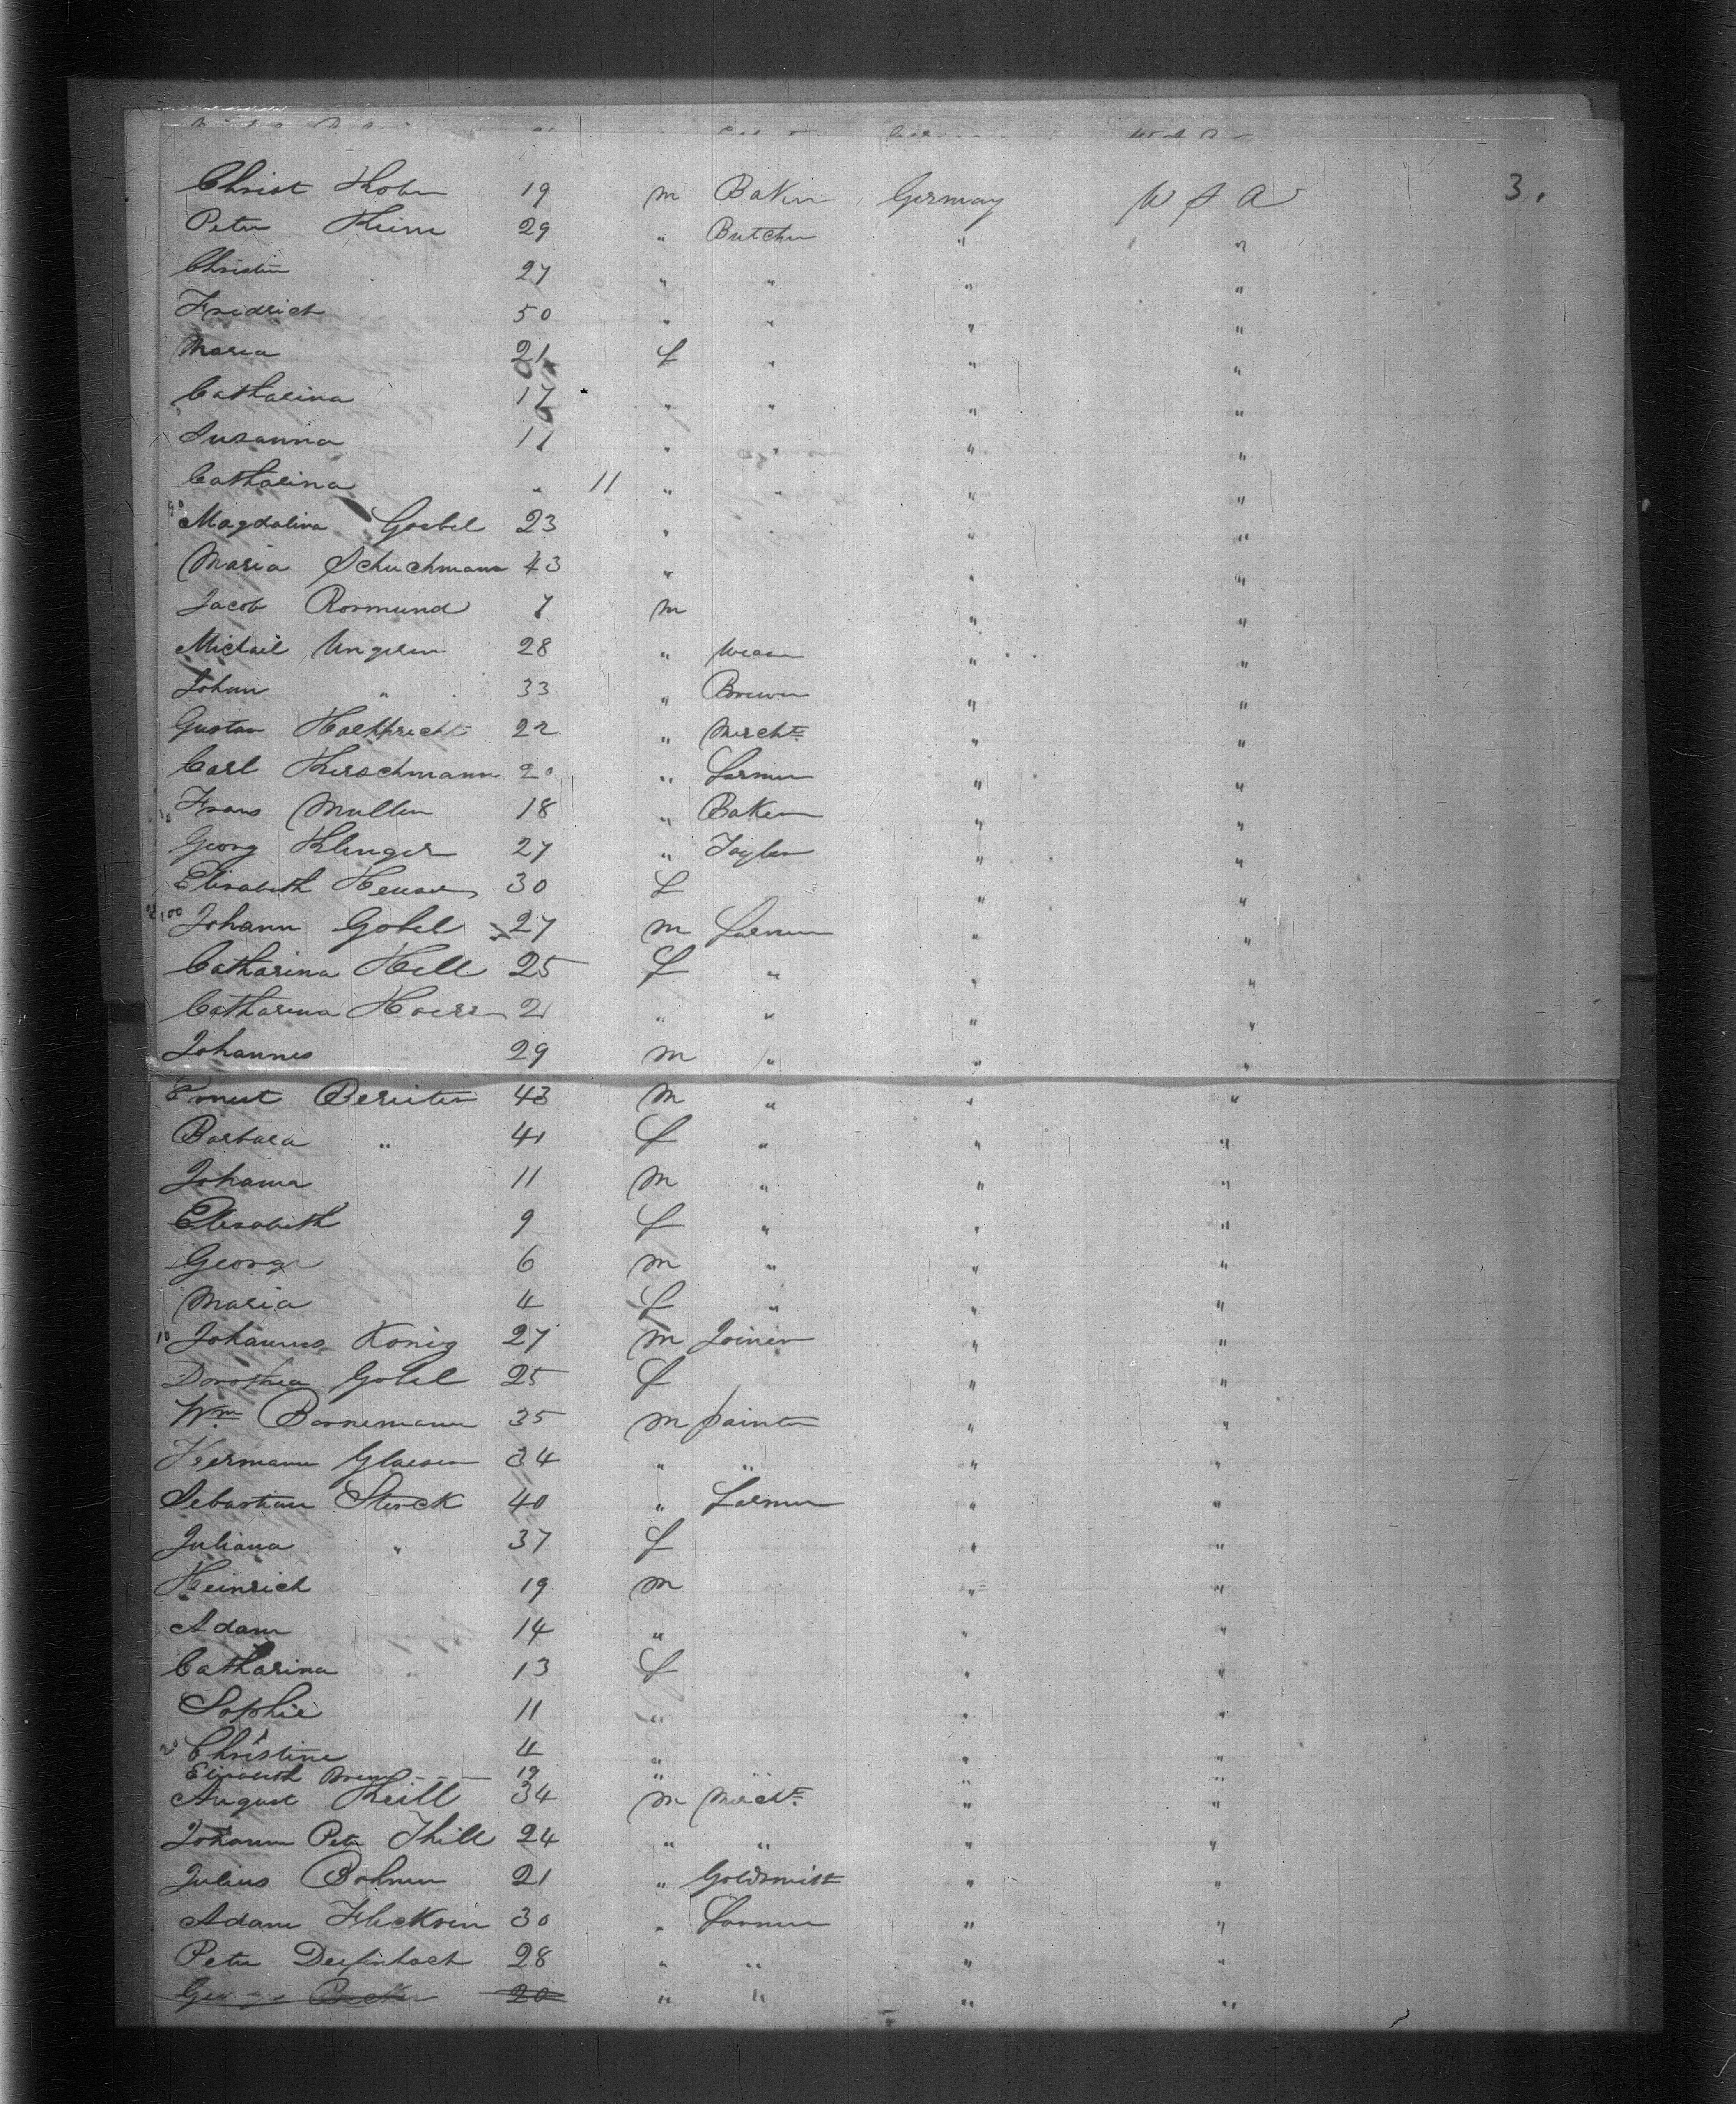 Christ 19 m Baker Germany U S A 3.
Peter Heim 29 " Butcher " "
Christin 27 " " " "
Fredrich 50 " " " "
Maria 21 f " " "
Catharina 17 " " " "
Susanna 11 " " " "
Catharina " 11 " " " "
Magdalina Goebel 23 " " " "
Maria Schuchmann 43 " " "
Jacob Rosmund 7 m " "
Michael Ungerer 28 " " "
Johann " 33 " Brewer " "
Gustav 22 " Mercht. " "
Carl Hirschmann 20 " Farmer " "
Frans Muller 18 " Baker " "
Georg Klinger 27 " Taylor " "
Elisabeth 30 f " "
100 Johann Gobel 27 m Farmer " "
Catharina Hell 25 f " " "
Catharina 21 " " " "
Johannes 29 m " " "
Ernest 43 m " " "
Barbara " 41 f " " "
Johann 11 m " " "
Elisabeth 9 f " " "
George 6 m " " "
Maria 4 f " " "
10 Johannes Konig 27 m Joiner " "
Dorothea Gobel 25 f " "
Wm Bornemann 35 m painter " "
Hermann Glaeser 34 " " " "
Sebastian Sterck 40 " Farmer " "
Juliana " 37 f " "
Heinrich 19 m " "
Adam 14 " " "
Catharina " 13 f " "
Sophie 11 " " "
20 Christine 4 " " "
Elisabeth 19 " " " "
August Keill 34 m Mercht. " "
Johann Peter Thill 24 " " " "
Julius Bohmer 21 " Goldsmith " "
Adam 30 " Farmer " "
Peter 28 " " " "
George Becker 20 " " " "